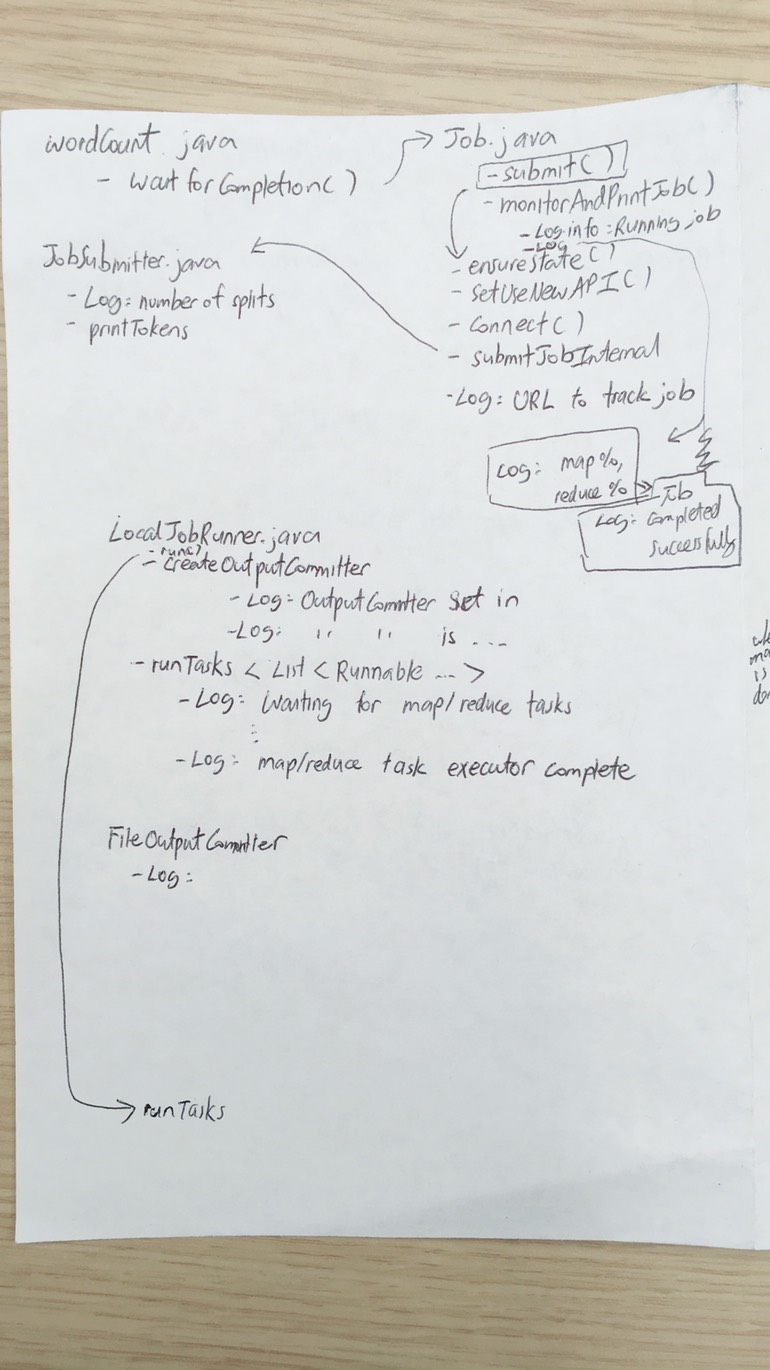 WordCount.java
- WaitforCompletion()
Job.java
- submit()
- monitorAndPrintJob()
- Log info: Running job
- Log
- ensureState()
- setUseNewAPI()
- Connect()
- submitJobInternal
- Log: URL to track job
JobSubmitter.java
- Log: number of splits
- printTokens
Log: map%,
reduce %
Job
Log: Completed
successfully
LocalJobRunner.java
- run()
- createOutputCommitter
- Log: OutputCommtter set in
- Log: " " is ...
- runTasks < List < Runnable ... >
- Log: Waiting for map/reduce tasks
⋮
- Log: map/reduce task executor complete
FileOutputCommtter
- Log:
runTasks
is